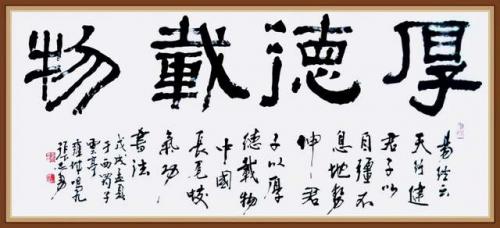 厚德載物
易經云
天行健
君子以
自彊不
息地勢
坤君
子以厚
德載物
中國
長毫
氣功
書法
戊戌孟夏
于西蜀子
雲亭